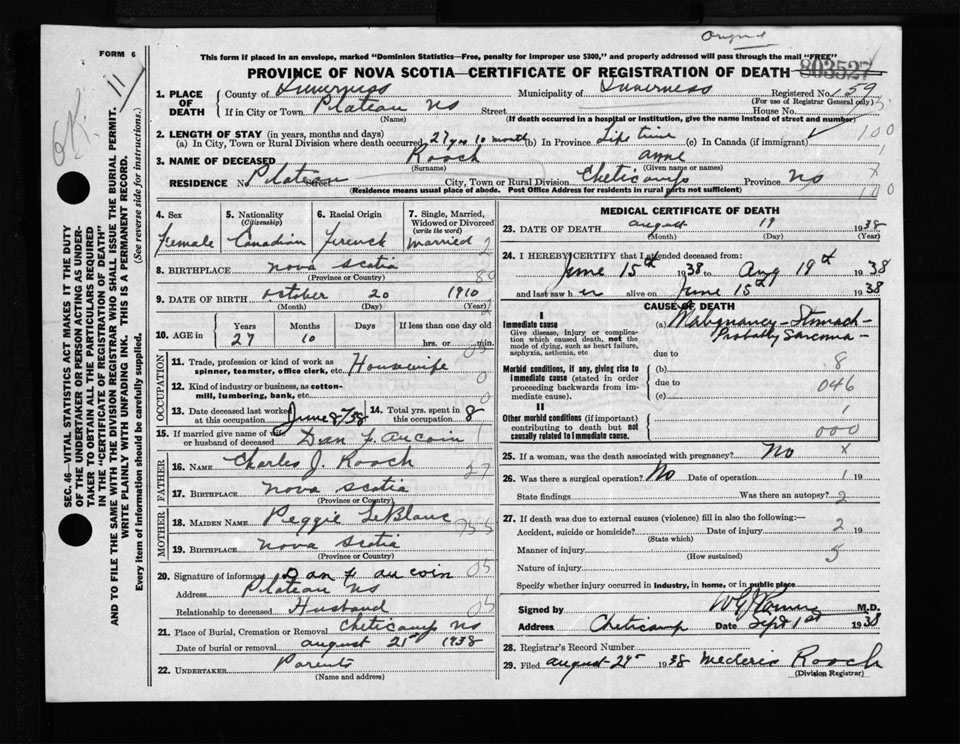 Original
FORM 6
This form if placed in an envelope, marked "Dominion Statistics—Free, penalty for improper use $300," and properly addressed will pass through the mail "FREE"
PROVINCE OF NOVA SCOTIA—CERTIFICATE OF REGISTRATION OF DEATH 803527
11
SEC. 46—VITAL STATISTICS ACT MAKES IT THE DUTY
OF THE UNDERTAKER OR PERSON ACTING AS UNDER-
TAKER TO OBTAIN ALL THE PARTICULARS REQUIRED
IN THE "CERTIFICATE OF REGISTRATION OF DEATH"
AND TO FILE THE SAME WITH THE DIVISION REGISTRAR WHO SHALL ISSUE THE BURIAL PERMIT.
WRITE PLAINLY WITH UNFADING INK. THIS IS A PERMANENT RECORD.
Every item of information should be carefully supplied. (See reverse side for instructions.)
1. PLACE OF DEATH
County of Inverness Municipality of Inverness Registered No. 159
(For use of Registrar General only)
If in City or Town Plateau NS Street House No.
(Name) (If death occurred in a hospital or institution, give the name instead of street and number)
2. LENGTH OF STAY (in years, months and days)
(a) In City, Town or Rural Division where death occurred 27 yrs 10 month (b) In Province Life time (c) In Canada (if immigrant) 100
3. NAME OF DECEASED Roach Anne
(Surname) (Given name or names)
RESIDENCE No. Plateau Street City, Town or Rural Division Cheticamp Province NS
(Residence means usual place of abode. Post Office Address for residents in rural parts not sufficient) 100
4. Sex Female
5. Nationality (Citizenship) Canadian
6. Racial Origin French
7. Single, Married, Widowed or Divorced (write the word) Married 2
8. BIRTHPLACE Nova Scotia
(Province or Country)
9. DATE OF BIRTH October 20 1910
(Month) (Day) (Year)
10. AGE in Years Months Days If less than one day old
27 10 hrs. or min.
OCCUPATION
11. Trade, profession or kind of work as spinner, teamster, office clerk, etc. Housewife
12. Kind of industry or business, as cotton-mill, lumbering, bank, etc. 0
13. Date deceased last worked at this occupation June 8/38 14. Total yrs. spent in this occupation 8
15. If married give name of wife or husband of deceased Dan F. Aucoin
FATHER
16. NAME Charles J. Roach
17. BIRTHPLACE Nova Scotia
(Province or Country)
MOTHER
18. MAIDEN NAME Peggie LeBlanc
19. BIRTHPLACE Nova Scotia
(Province or Country)
20. Signature of informant Dan F Aucoin 05
Address Plateau NS
Relationship to deceased Husband 05
21. Place of Burial, Cremation or Removal Cheticamp NS
Date of burial or removal August 21st 1938
22. UNDERTAKER Parents
(Name and address)
MEDICAL CERTIFICATE OF DEATH
23. DATE OF DEATH August 19 1938
(Month) (Day) (Year)
24. I HEREBY CERTIFY that I attended deceased from:
June 15th 1938 to Aug 19th 1938
and last saw h er alive on June 15th 1938
CAUSE OF DEATH
I
Immediate cause
Give disease, injury or complication which caused death, not the mode of dying, such as heart failure, asphyxia, asthenia, etc
(a) Malignancy - Stomach -
Probably Sarcoma -
due to
Morbid conditions, if any, giving rise to immediate cause (stated in order proceeding backwards from immediate cause).
(b) 8
due to 046
(c)
II
Other morbid conditions (if important) contributing to death but not causally related to immediate cause. 000
25. If a woman, was the death associated with pregnancy? No X
26. Was there a surgical operation? No Date of operation 1 19
State findings Was there an autopsy? 2
27. If death was due to external causes (violence) fill in also the following:—
Accident, suicide or homicide? Date of injury 2 19
(State which)
Manner of injury 5
(How sustained)
Nature of injury
Specify whether injury occurred in industry, in home, or in public place
Signed by M.D.
Address Cheticamp Date Sept 1st 1938
28. Registrar's Record Number
29. Filed August 29 1938 Mederic Roach
(Division Registrar)